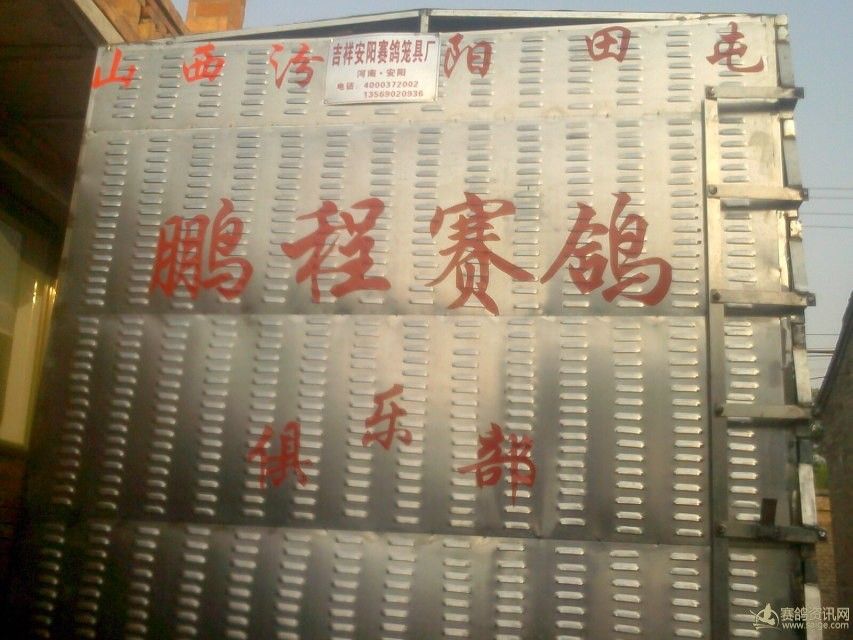 山西汾阳田屯
吉祥安阳赛鸽笼具厂
河南·安阳
电话：4000372002
13569020936
鹏程赛鸽
俱乐部
赛鸽资讯网
www.saige.com